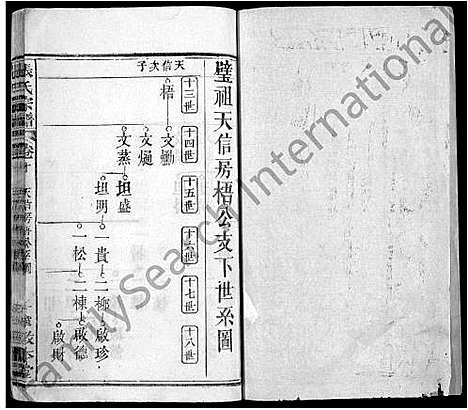 璧祖天信房梧公支下世系圖
天信次子
十三世
梧
十四世
文勳
文煺
文燕
十五世
坦盛
坦明
十六世
一貴
一松
十七世
二極
二棟
十八世
啟珍
啟德
啟財
張氏宗譜
卷
FamilySearch International